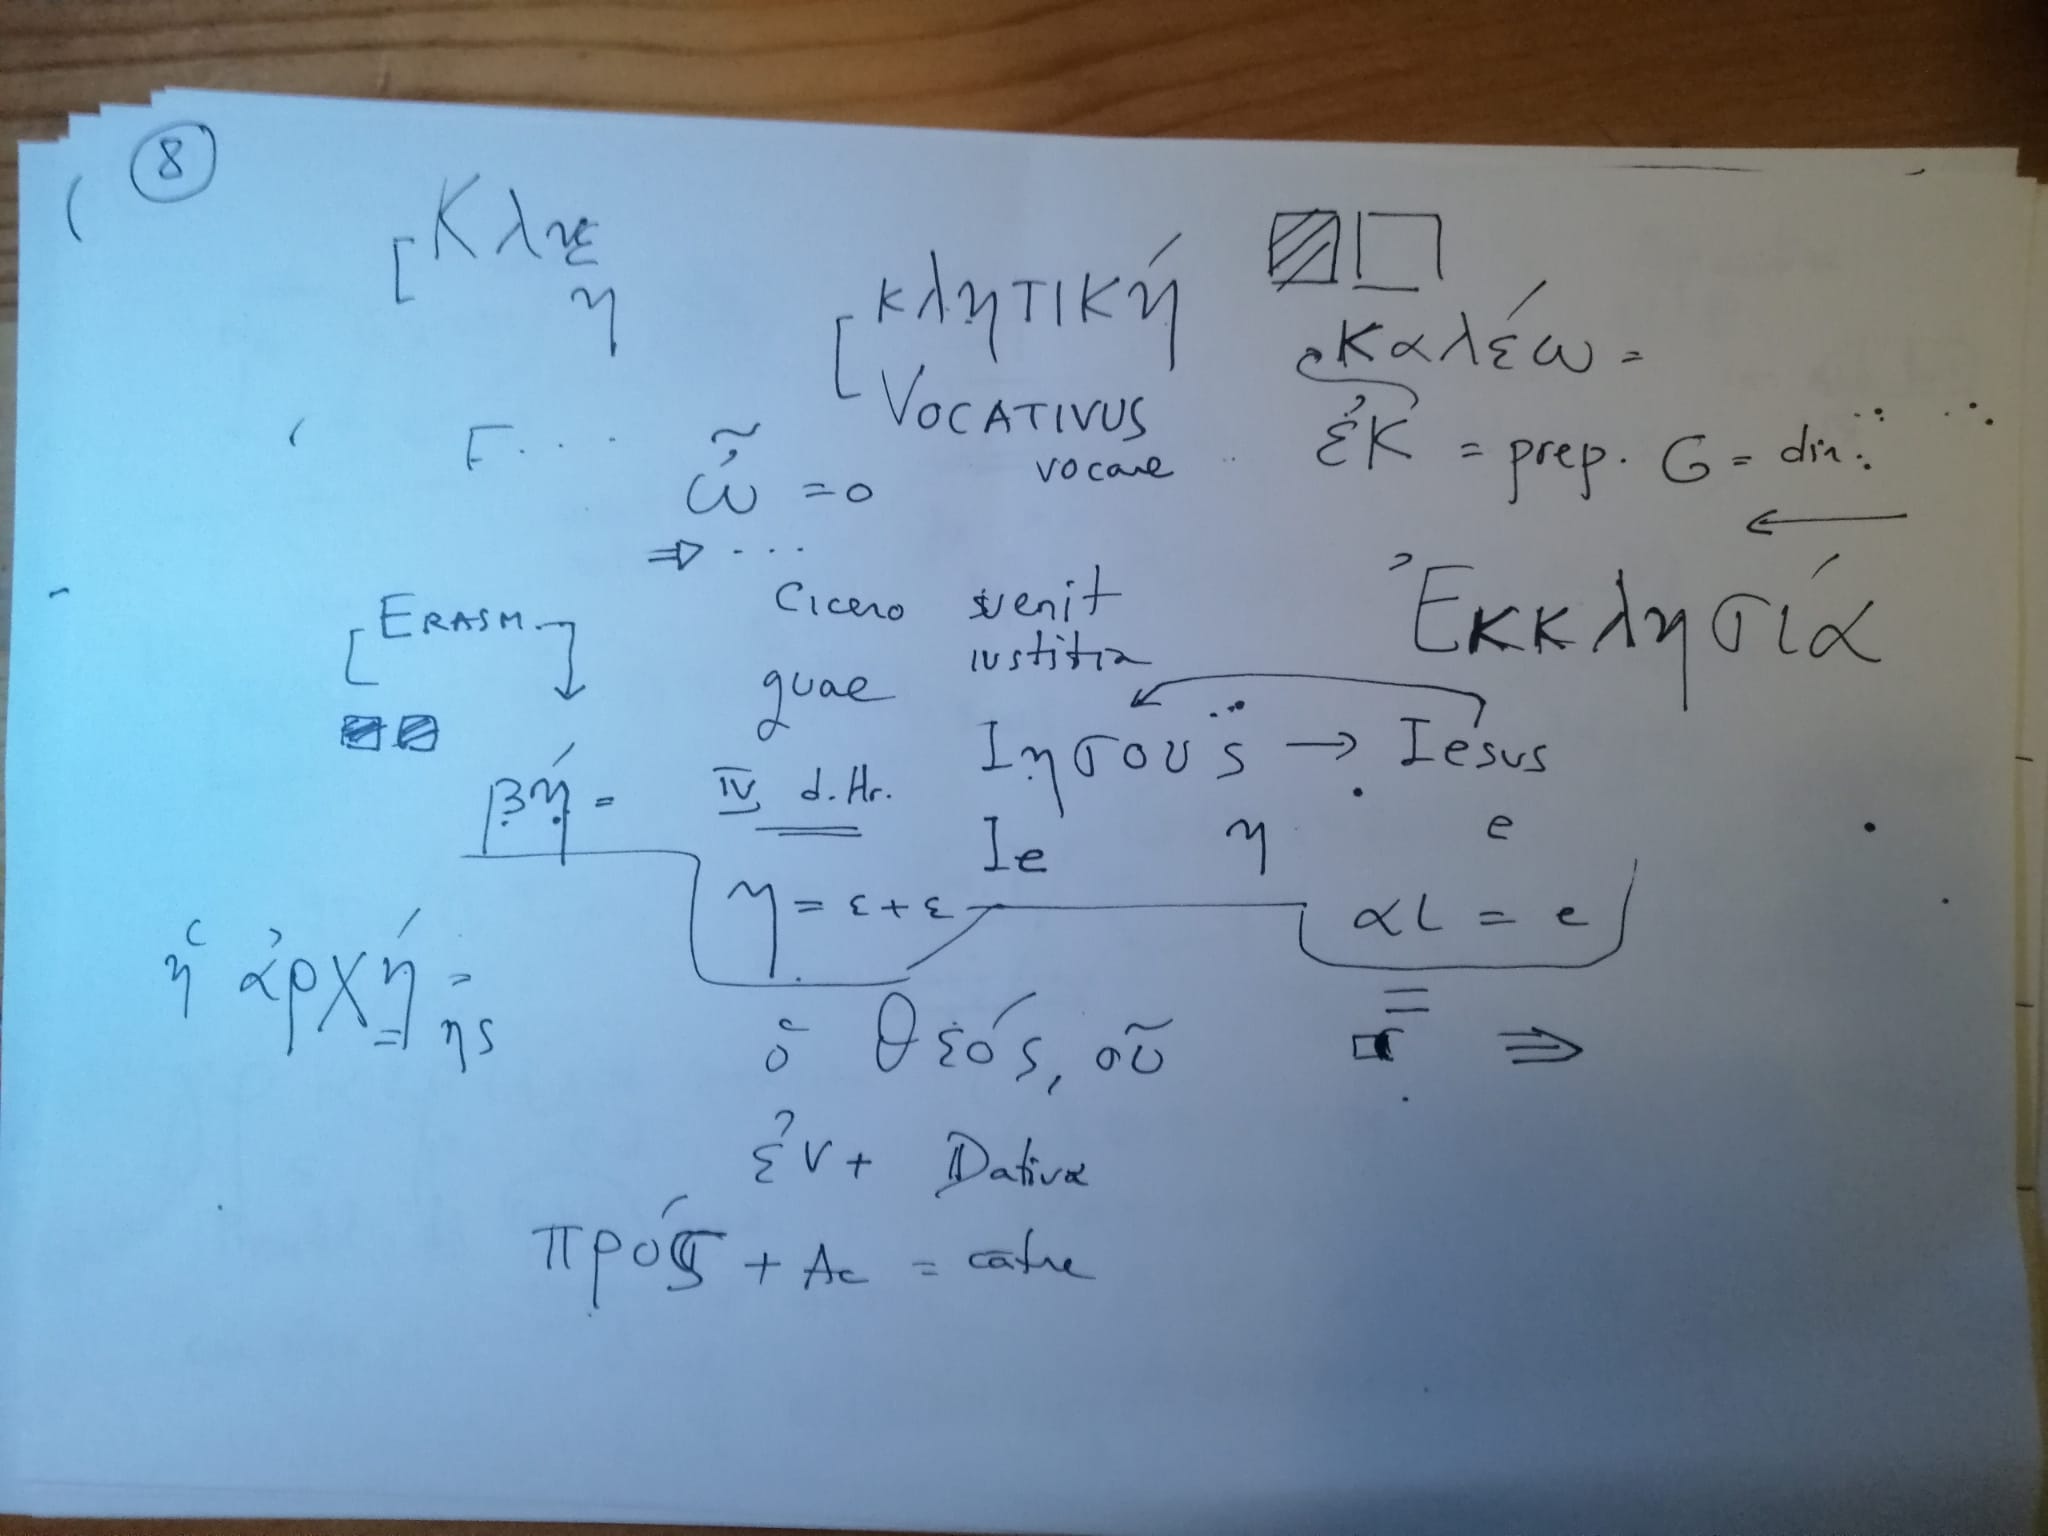 8
Κλη
η
κλητική
VOCATIVUS
vocare
καλέω =
ἐκ = prep. G = din
F...
ὦ = o
⇒ ...
Ἐκκλησία
ERASM.
Cicero venit
iustitia
quae
Ιησους → Iesus
βή =
IV d. Hr.
Ie η e
η = ε + ε
αι = e
ἡ ἀρχή =
ης
ὁ Θεός, οῦ
ἐν + Dativ
πρός + Ac = catre